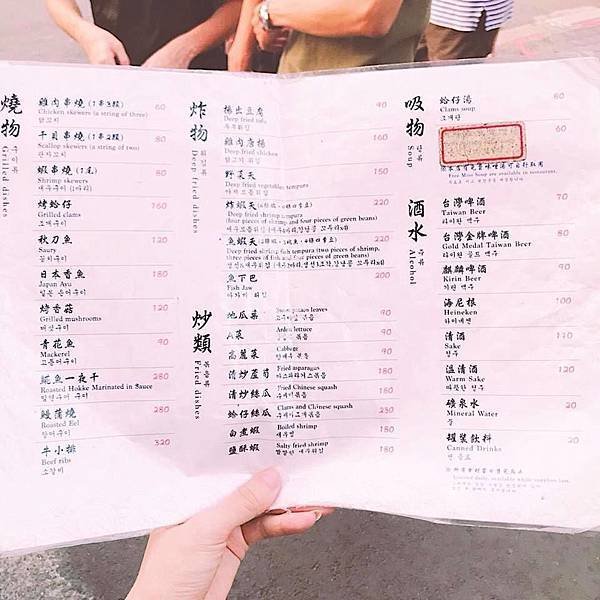 燒物
구이류
Grilled dishes
雞肉串燒 (1串3粒) 60
Chicken skewers (a string of three)
닭꼬치
干貝串燒 (1串2粒) 80
Scallop skewers (a string of two)
관자꼬치
蝦串燒 (1尾) 80
Shrimp skewers
새우구이 (1마리)
烤蛤仔 160
Grilled clams
조개구이
秋刀魚 120
Saury
꽁치구이
日本香魚 180
Japan Ayu
일본 은어구이
烤香菇 120
Grilled mushrooms
버섯구이
青花魚 90
Mackerel
고등어구이
鯱魚一夜干 280
Roasted Hokke Marinated in Sauce
鰻蒲燒 280
Roasted Eel
장어구이
牛小排 320
Beef ribs
소갈비
炸物
튀김류
Deep fried dishes
揚出豆腐 90
Deep fried tofu
두부튀김
雞肉唐揚 160
Deep fried chicken
닭고기 튀김
野菜天 150
Deep fried vegetable tempura
야채모듬튀김
炸蝦天 220
Deep fried shrimp tempura
(four pieces of shrimp and four pieces of green beans)
魚蝦天 220
Deep fried shrimp fish tempura (two pieces of shrimp,
three pieces of fish and four pieces of green beans)
魚下巴 200
Fish Jaw
炒類
볶음류
Fried dishes
地瓜葉 90
Sweet potato leaves
A菜 90
Arden lettuce
高麗菜 90
Cabbage
양배추 볶음
清炒蘆筍 180
Fried asparagus
아스파라거스볶음
清炒絲瓜 180
Fried Chinese squash
수세미볶음
蛤仔絲瓜 180
Clams and Chinese squash
수세미조개볶음
白煮蝦 180
Boiled shrimp
새우찜
鹽酥蝦 180
Salty fried shrimp
짭짤한 새우튀김
吸物
탄류
Soup
蛤仔湯 80
Clams soup
조개탄
60
Free Miso Soup are available in restaurant.
酒水
주류
Alcohol
台灣啤酒 70
Taiwan Beer
타이완 맥주
台灣金牌啤酒 80
Gold Medal Taiwan Beer
타이완 골드 맥주
麒麟啤酒 90
Kirin Beer
기린 맥주
海尼根 100
Heineken
하이네켄
清酒 110
Sake
청주
溫清酒 120
Warm Sake
따뜻한 청주
礦泉水 20
Mineral Water
물
罐裝飲料 20
Canned Drinks
캔 음료